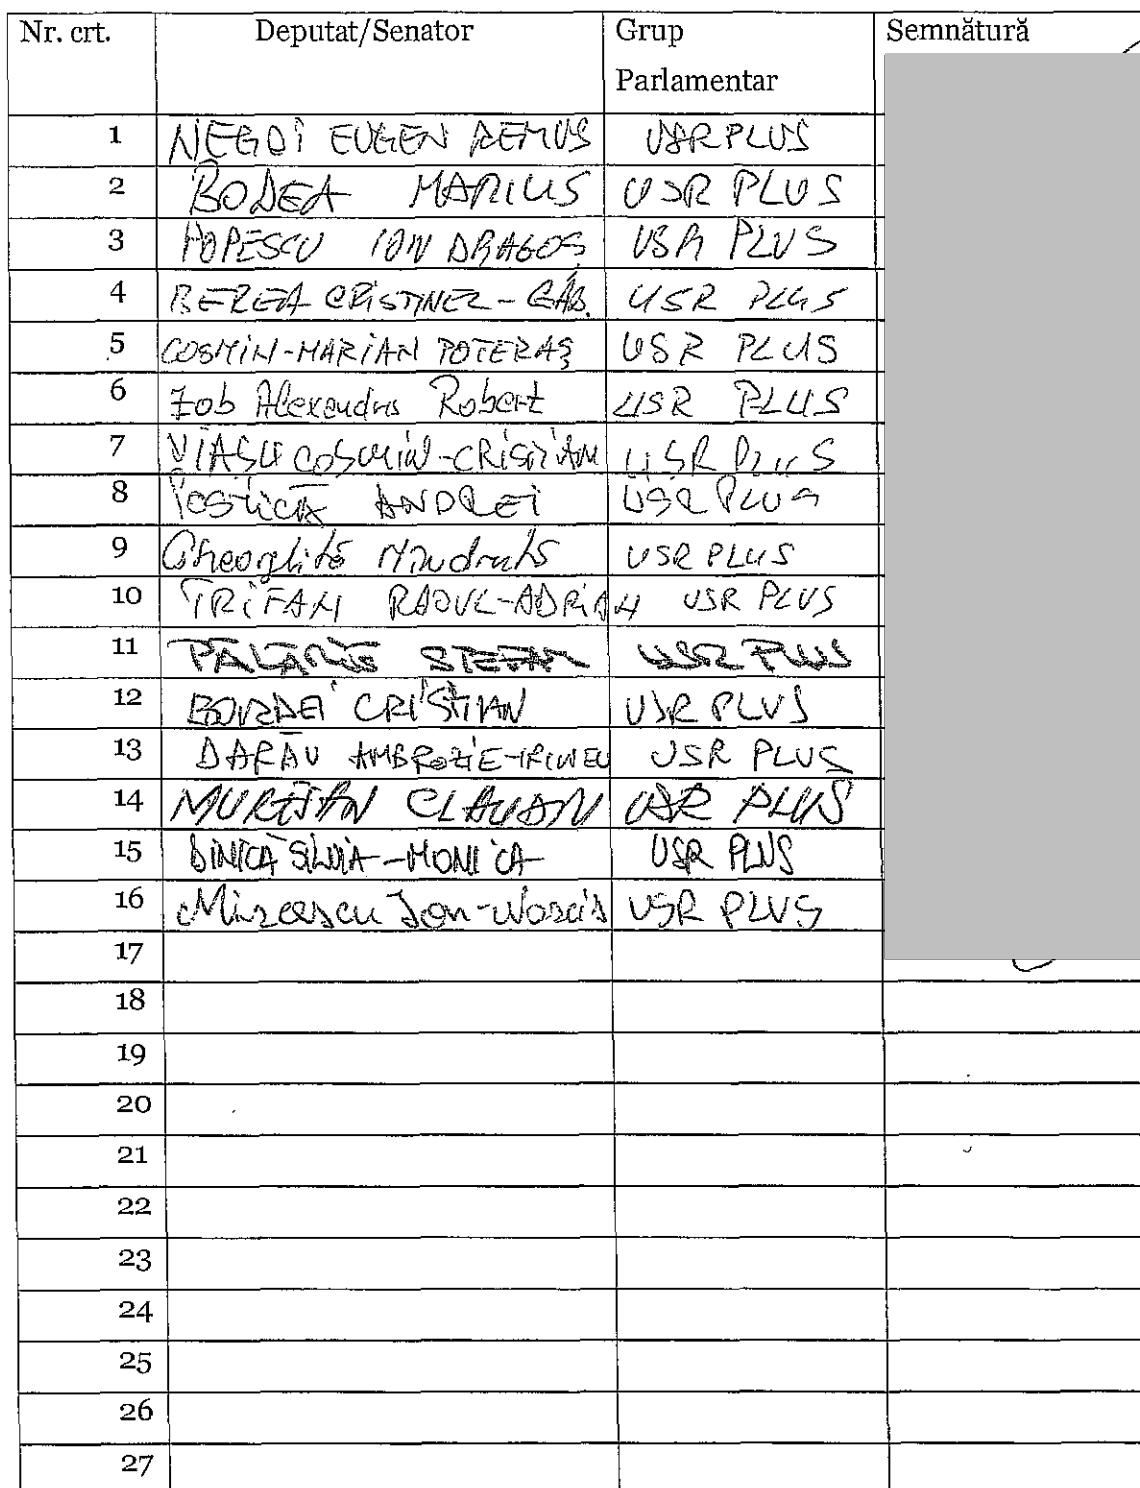 Nr. crt. Deputat/Senator Grup Parlamentar Semnătură
1 NEGOI EUGEN REMUS USR PLUS
2 BODEA MARIUS USR PLUS
3 POPESCU ION DRAGOȘ USR PLUS
4 BEREA CRISTINEL-GAB. USR PLUS
5 COSMIN-MARIAN POTERAȘ USR PLUS
6 Zob Alexandru Robert USR PLUS
7 VIAȘU COSMIN-CRISTIAN USR PLUS
8 POSTICĂ ANDREI USR PLUS
9 Gheorghiță Mindruță USR PLUS
10 TRIFAN RAOUL-ADRIAN USR PLUS
11 PĂLĂRIE STEFAN USR PLUS
12 BORDEI CRISTIAN USR PLUS
13 DARĂU AMBROZIE-IRINEU USR PLUS
14 MUREȘAN CLAUDIU USR PLUS
15 DINICĂ SILVIA-MONICA USR PLUS
16 Mircescu Ion-Narcis USR PLUS
17
18
19
20
21
22
23
24
25
26
27